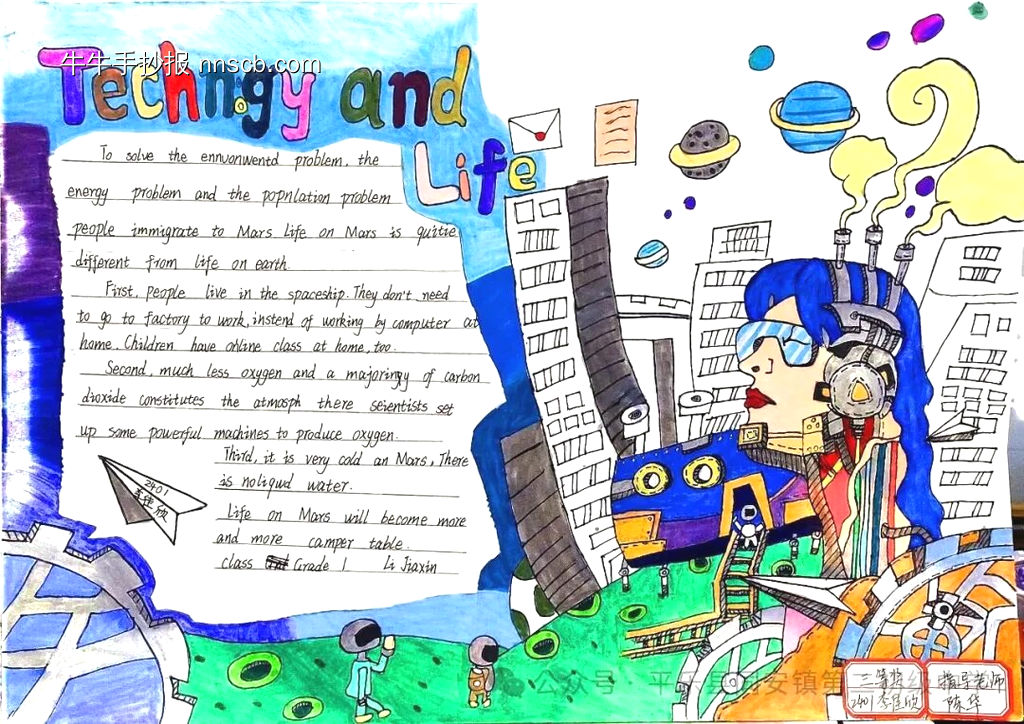 牛牛手抄报 nnscb.com
Techngy and
Life
To solve the ennvonwentd problem, the
energy problem and the popnlation problem
people immigrate to Mars Life on Mars is quitie
different from life on earth.
First, people live in the spaceship. They don't need
to go to factory to work, instend of working by computer at
home. Children have online class at home, too.
Second, much less oxygen and a majoringy of carbon
dioxide constitutes the atmosph there seientists set
up some powerful machines to produce oxygen.
Third, it is very cold an Mars, There
is noliqwd water.
Life on Mars will become more
and more camper table.
class Grade 1 Li Jiaxin
2401
李佳欣
公众号·平乐县同安镇第二
三等奖
2401 李佳欣
指导老师
陈华